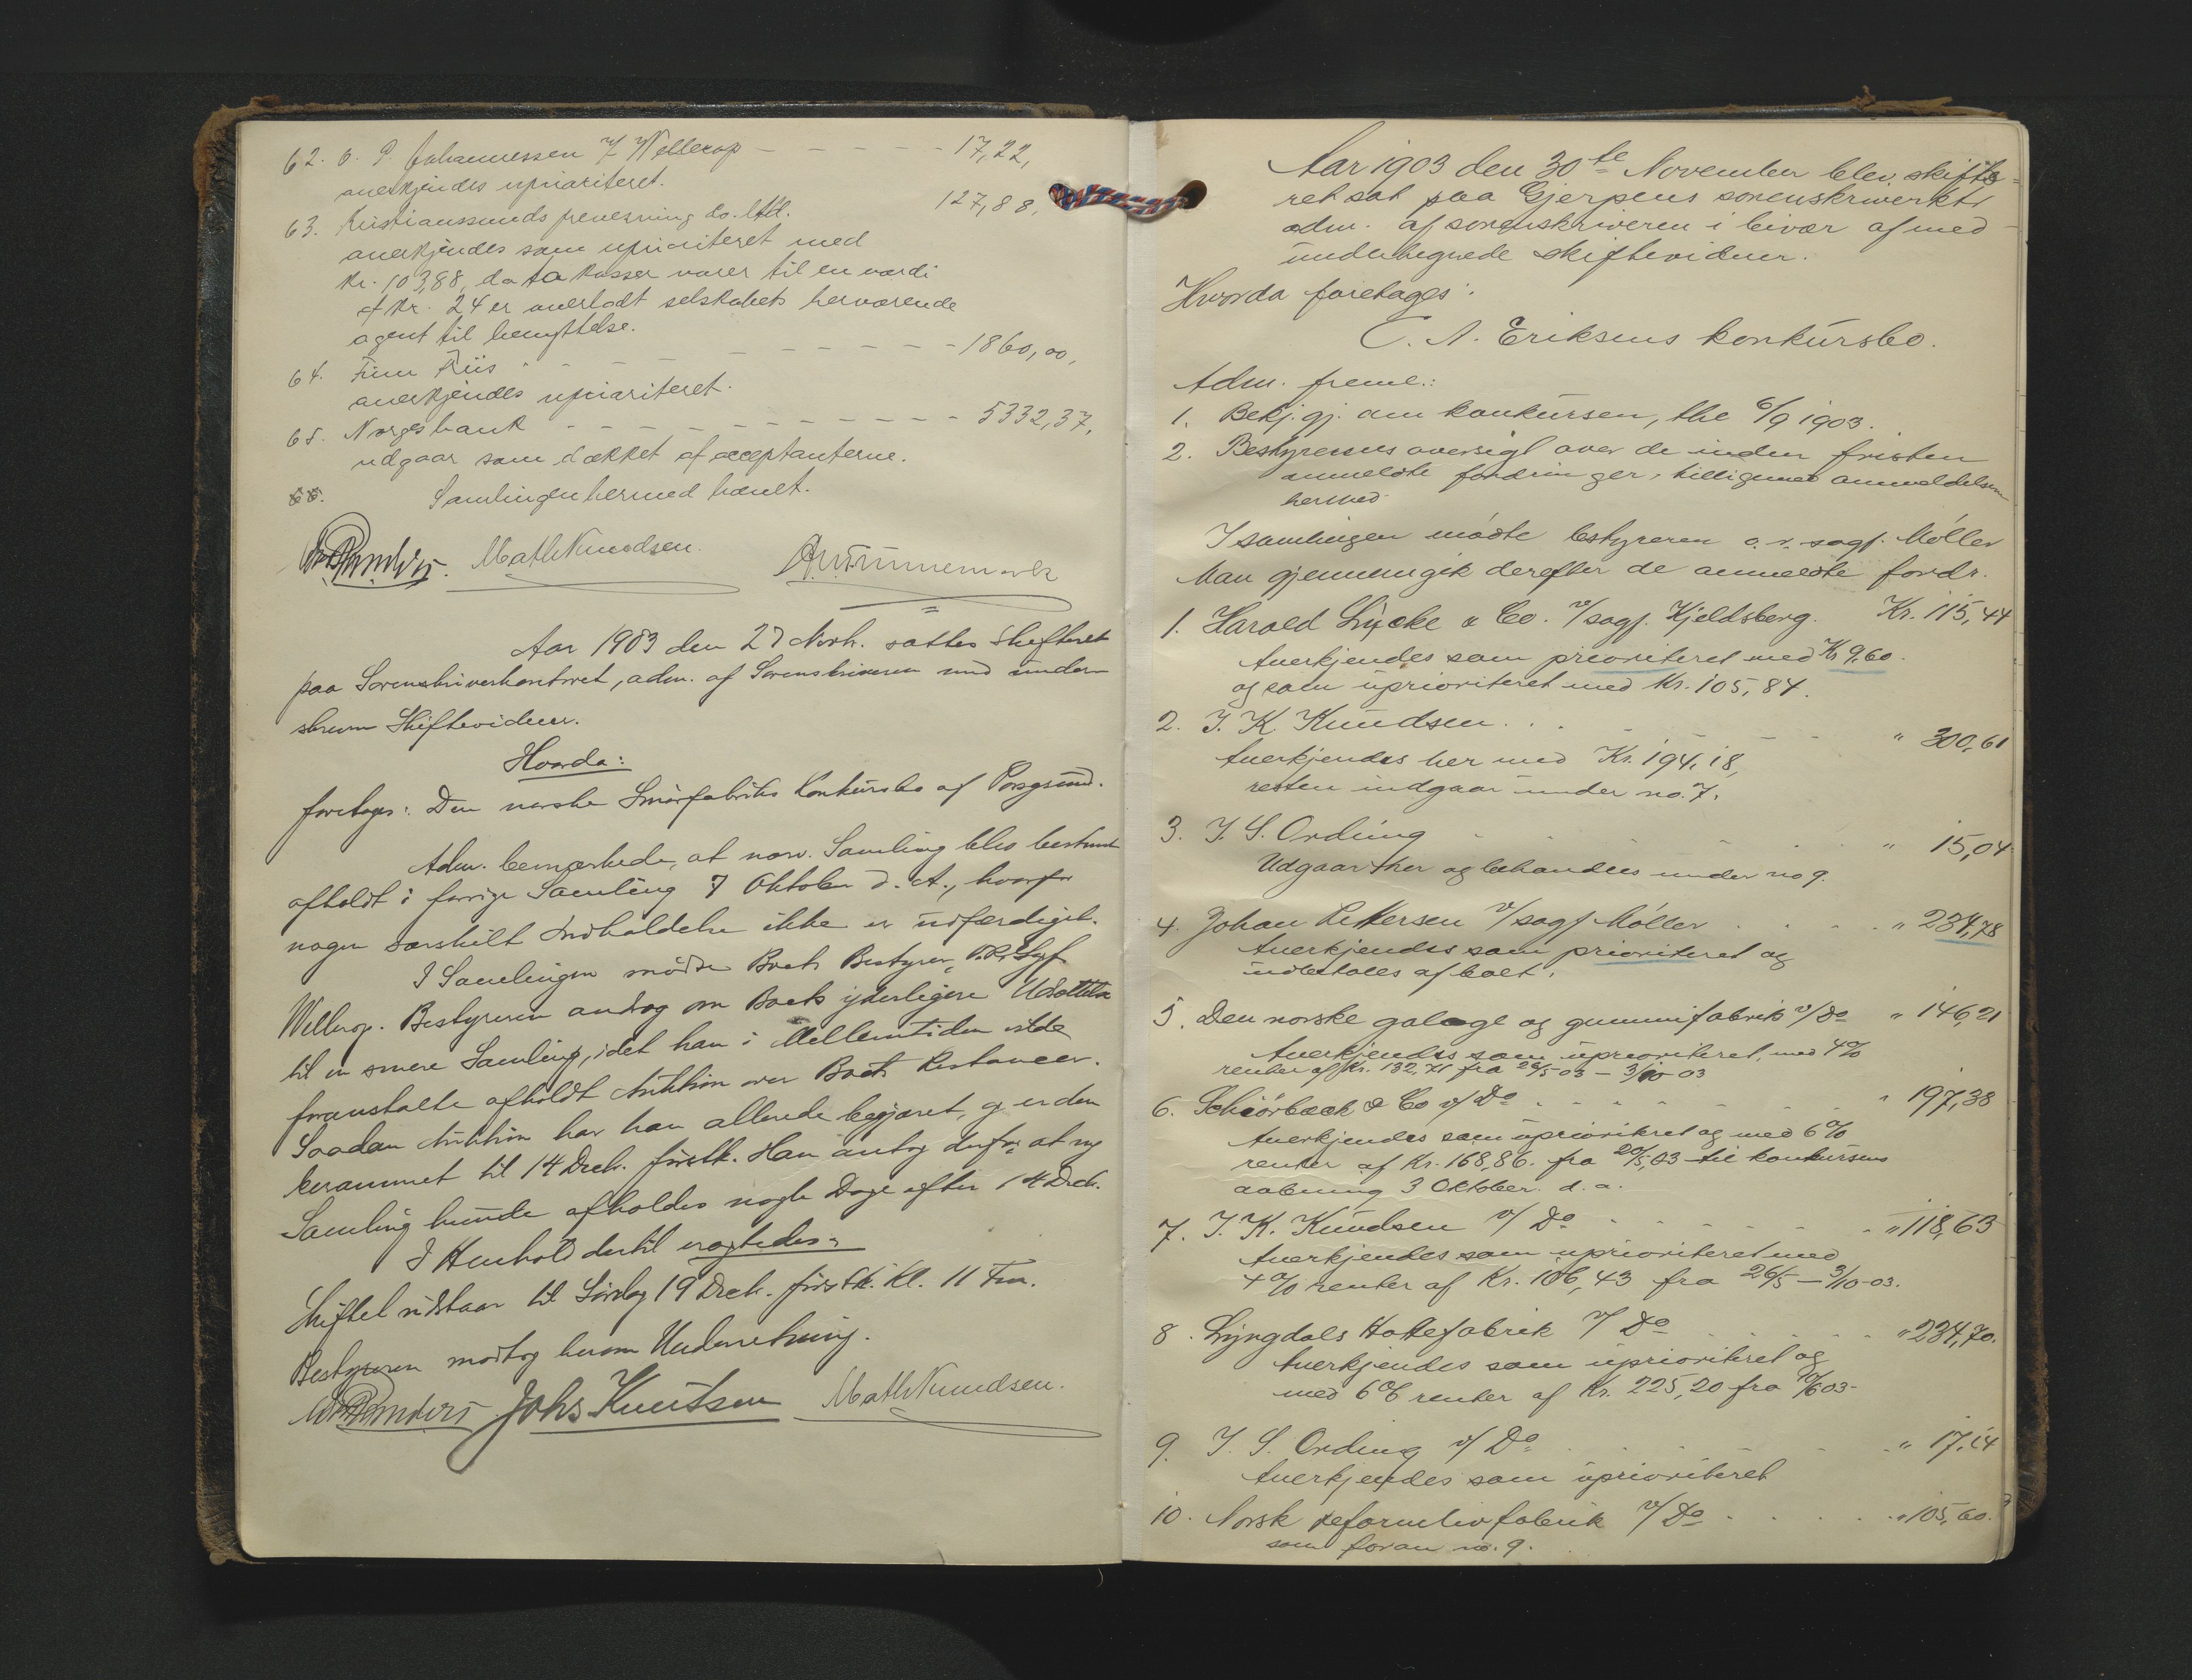 62. O. P. Johannessen v/ Wellerop - - - - - 17,22,
anerkjendes uprioriteret.
63. Kristianssunds preserving co. Ltd. 127,88,
anerkjendes som uprioriteret med
kr. 103,88, da to kasser varer til en værdi
af kr. 24 er overladt selskabets herværende
agent til benyttelse.
64. Finn Friis - - - - - - - - 1860,00,
anerkjendes uprioriteret.
65. Norges bank - - - - - - - - 5332,37,
udgaar som dækket af acceptanterne.
66. Samlingen hermed hævet.
MathKnudsen.
Aar 1903 den 27 Novb. sattes Skifteret
paa Sorenskriverkontoret, adm. af Sorenskriveren med under-
skrevne Skiftevidner.
Hvorda:
foretoges: Den norske Smørfabriks Konkursbo af Porsgrund.
Adm. bemærkede, at nærv. Samling blev bestemt
afholdt i forrige Samling 7 Oktober d. A., hvorfor
nogen særskilt Indkaldelse ikke er udfærdiget.
I Samlingen mødte Boets Bestyrer, O.R. Sagf.
Wellerop. Bestyreren androg om Boets yderligere Udsættelse
til en senere Samling, idet han i Mellemtiden vilde
foranstalte afholdt Auktion over Boets Restancer.
Saadan Auktion har han allerede begjæret, og er den
berammet til 14 Decb. førstk. Han antog derfor at ny
Samling kunde afholdes nogle Dage efter 14 Decb.
I Henhold dertil vagtedes:
Skiftet udstaar til Lørdag 19 Decb. førstk. Kl. 11 Fm.
Bestyreren modtog herom Underretning.
Johs Knutsen MathKnudsen.
Aar 1903 den 30te November blev skifte-
ret sat paa Gjerpens sorenskriverktr
adm. af sorenskriveren i bivær af med-
undertegnede skiftevidner.
Hvorda foretoges:
C. A. Eriksens konkursbo.
Adm. freml.:
1. Bekj.gj. om konkursen, thl. 6/9 1903.
2. Bestyrerens oversigt over de inden fristen
anmeldte fordringer, tilligemed anmeldelserne
hermed.
I samlingen mødte bestyreren o.r. sagf. Møller
Man gjennemgik derefter de anmeldte fordr.
1. Harald Lycke & Co. v/ sagf. Kjeldsberg. Kr. 115,44
Anerkjendes som prioriteret med Kr 9.60.
og som uprioriteret med Kr. 105,84.
2. J. K Knudsen . . . " 300,61
Anerkjendes her med Kr. 194,18,
resten indgaar under no. 7.
3. J. S. Ording . . . " 15,04
Udgaar her og behandles under no 9.
4. Johan Pettersen v/ sagf Møller . . . . " 234,78
Anerkjendes som prioriteret og
indbetales af boet.
5. Den norske galoge og gummifabrik v/ Do " 146,21
Anerkjendes som uprioriteret, med 4%
renter af Kr. 132,71 fra 26/5 03 - 3/10 03
6. Schiørbeck & Co v/ Do . . . . " 197,38
Anerkjendes som uprioriteret og med 6%
renter af Kr. 168,86. fra 20/5 03 til konkursens
aabning 3 Oktober d. a.
7. J. K. Knudsen v/ Do . . . . " 118,63
Anerkjendes som uprioriteret med
4% renter af Kr. 106,43 fra 26/5 - 3/10-03.
8. Lyngdals Hattefabrik v/ Do . . . . " 234,70.
Anerkjendes som uprioriteret og
med 6% renter af Kr. 225,20 fra 03-
9. J. S. Ording v/ Do . . . . " 17,14
Anerkjendes som uprioriteret
10. Norsk reformlivfabrik v/ Do . . . . " 105,60.
som foran no. 9.